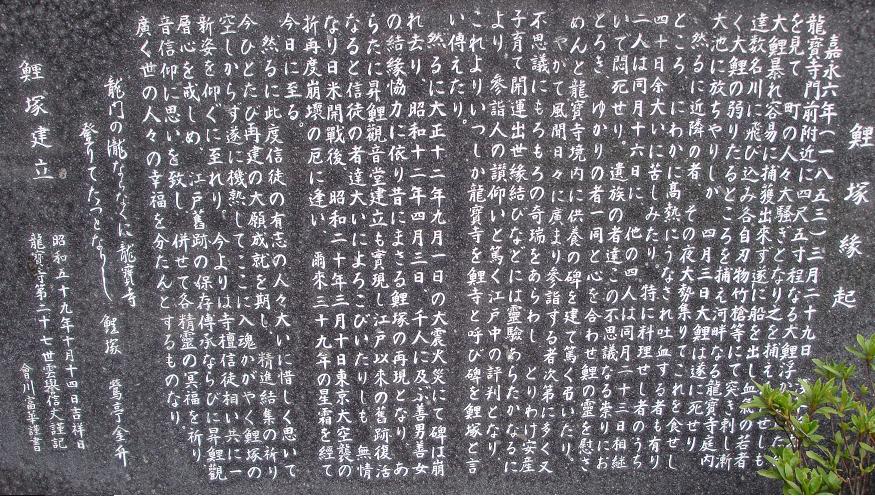 鯉塚縁起
嘉永六年(一八五三)三月二十九日
龍寶寺門前附近に四尺五寸程なる大鯉浮
を見て 町の人々大騒ぎとなり之を捕え せしも
大鯉暴れ容易に捕獲出來ず遂に船を出し血氣の若者
達数名川に飛び込み各自刃物竹槍等にて突き刺し漸
く大鯉の弱りたるところを捕え河畔なる龍寶寺庭内
大池に放ちやりしが 四月三日大鯉は遂に死せり
然るに近隣の者 その夜大勢集りてこれを食せし
ところ にわかに高熱にうなされ吐血する者も有り
四十日余大いに苦しみたり 特に料理せし者のうち
二人は同月十六日に 他の四人は同月二十三日相継
いで悶死せり。遺族の者達この不思議なる祟りにお
とろき ゆかりの者一同と心を合わせ鯉の靈を慰さ
めんと龍寶寺境内に供養の碑を建て篤く弔いたり。
やがて風聞日々に廣まり参詣する者次第に多く又
不思議にもろもろの奇瑞をあらわし とりわけ安産
子育て開運出世縁結びなどには靈驗あらたかなるに
より 参詣人の讃仰いと篤く江戸中の評判となり
これよりいつしか龍寶寺を鯉寺と呼び碑を鯉塚と言
い傳えたり。
然るに大正十二年九月一日の大震火災にて碑は崩
れ去り 昭和十二年四月三日 千人に及ぶ善男善女
の結縁協力に依り昔にまさる鯉塚の再現となり あ
らたに昇鯉觀音堂建立も實現し江戸以來の舊跡復活
なると信徒の者達大いによろこびいたりしも 無情
なり日米開戰後 昭和二十年三月十日東京大空襲の
折再度崩壊の厄に逢い 爾來三十九年の星霜を經て
今日に至る。
然るに此度信徒の有志の人々大いに惜しく思いて
今ひとたび再建の大願成就を期し 精進結集の祈り
空しからず遂に機熟してここに入魂かがやく鯉塚の
新姿を仰ぐに至れり。今よりは寺檀信徒相い共に一
層心を戒しめ 江戸舊跡の保存傳承ならびに昇鯉觀
音信仰に思いを致し 併せて各精靈の冥福を祈り
廣く世の人々の幸福を分たんとするものなり
龍門の瀧ならなくに龍寶寺
登りてたつとなりし 鯉塚 鶯亭金升
鯉塚建立
昭和五十九年十月十四日吉祥日
龍寶寺第二十七世雲譽信丈謹記
會川富革謹書